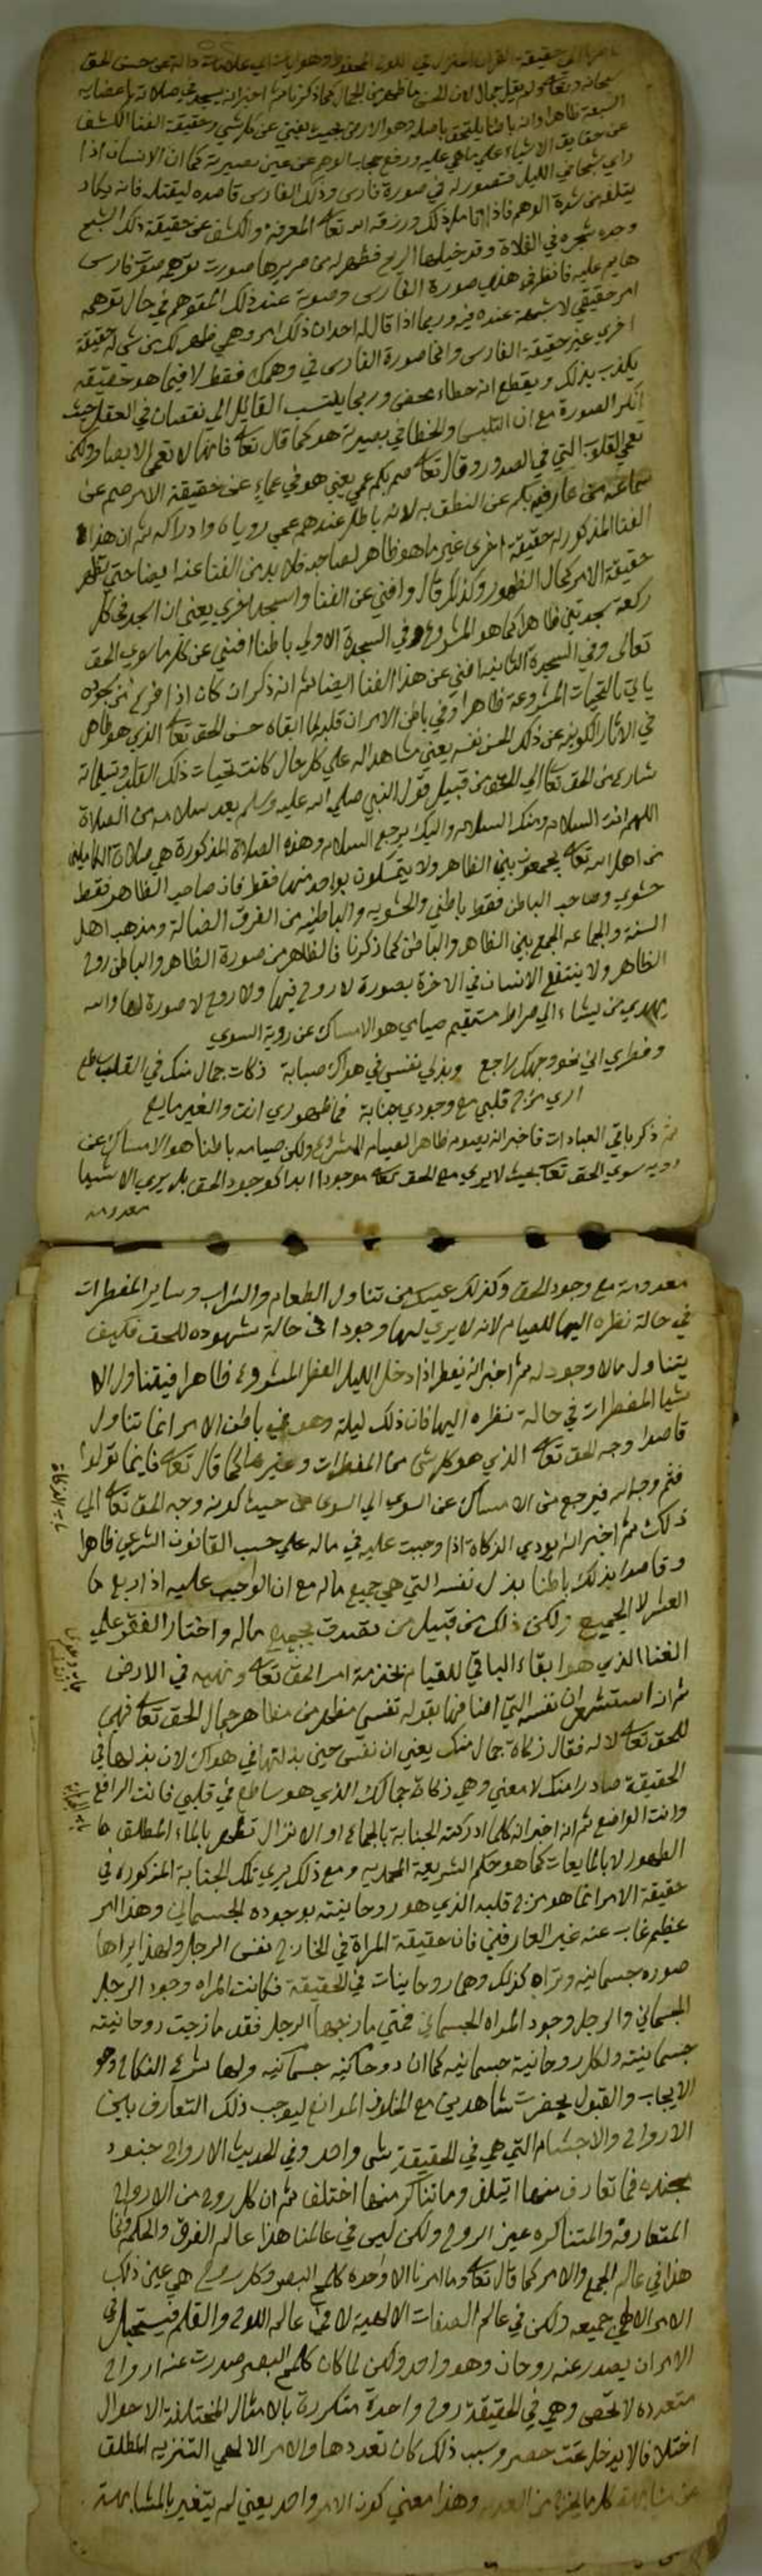 سبحانه وتعالى ولم يقل جمال لان الحسن ما ظهر من الجمال كما ذكرنا ثم اخبر انه يسجد في صلاته باعضايه
السبعة ظاهرا وانه باطنا يلتحق باصله وهو الارض بحيث يفني عن كل شي وحقيقة الفنا الكشف
عن حقايق الاشياء علي ماهي عليه ورفع حجاب الوهم عن عين بصيرته كما ان الانسان اذا
راي شجرا في الليل فتصور له في صورة فارس وذلك الفارس قاصده ليقتله فانه يكاد
يتلف من شدة الوهم فاذا تامل ذلك ورزقه الله تعالى المعرفة والكشف عن حقيقة ذلك الشبح
وجده شجرة في الفلاة وقد خيلها الريح فظهر له من صريرها صورت توهمه صوت فارس
هايم عليه فانظر في هذه صورة الفارس وصوته عند ذلك المتوهم في حال توهمه
امر حقيقي لا شبهة عنده فيه وربما اذا قال له احد ان ذلك امر وهمي ظهر لك من شي له حقيقة
اخري غير حقيقة الفارس وانما صورة الفارس في وهمك فقط لا فيما هو حقيقة
يكذب بذلك ويقطع انه خطاء محض وربما ينسب القايل الي نقصان في العقل حيث
انكر الصورة مع ان التلبس والخطا في بصيرته هو كما قال تعالى فانها لا تعمى الابصار ولكن
تعمي القلوب التي في الصدور وقال تعالى صم بكم عمي يعني هو في عماء عن حقيقة الامر صم عن
سماعه من عارفيه بكم عن النطق به لانه باطل عندهم عمي روياه وادراكه ثم ان هذا
الفنا المذكور له حقيقة اخري غير ما هو ظاهر لصاحبه فلا بد من الفنا عنه ايضا حتي تظهر
حقيقة الامر كمال الظهور وكذلك قال وافني عن الفنا واسجد اخري يعني ان الجد في كل
ركعة سجدتين ظاهرا كما هو المشروع وفي السجدة الاولي باطنا افني عن كل ما سوي الحق
تعالى وفي السجدة الثانية افني عن هذا الفنا ايضا ثم انه ذكر ان كان اذا فرغ من سجوده
ياتي بالتحيات المشروعة ظاهرا وفي باطن الامر ان قلبه لما ابقاه حسن الحق تعالى الذي هو ظاهر
في الاثار الكونيه عن ذلك الحسن نفسه يعني مشاهدا له علي كل حال كانت تحيات ذلك القلب وتسليماته
من الحق تعالى الي الحق من قبيل قول النبي صلي الله عليه وسلم بعد سلامه من الصلاة
اللهم انت السلام ومنك السلام واليك يرجع السلام وهذه الصلاة المذكورة هي صلاة الكاملين
من اهل الله تعالى يجمعون بين الظاهر ولا يتمسكون بواحد منهما فقط فان صاحب الظاهر فقط
حشوي وصاحب الباطن فقط باطني والحشويه والباطنيه من الفرق الضالة ومذهب اهل
السنة والجماعه الجمع بين الظاهر والباطن كما ذكرنا فالظاهر من صورة الظاهر والباطن روح
الظاهر ولا ينتفع الانسان في الاخرة بصورة لا روح فيها ولا روح لا صورة لها والله
يهدي من يشاء الي صراط مستقيم صيامي هو الامساك عن روية السوي
وفطري اني نحو وجهك راجع وبذلي نفسي في هواك صبابة زكات جمال منك في القلب ساطع
اري مزج قلبي مع وجودي جنابة فماء طهوري انت والغير مايع
ثم ذكر باقي العبادات فاخبر انه يصوم ظاهرا الصيام المشروع ولكن صيامه باطنا هو الامساك عن
روية سوي الحق تعالى بحيث لا يري مع الحق تعالى موجودا ابدا كوجود الحق بل يري الاشيا
معدومه
معدومة مع وجود الحق وكذلك عيسك من تناول الطعام والشراب وساير المفطرات
في حالة نظره اليها للصيام لانه لا يري لها وجودا في حالة شهوده للحق فكيف
يتناول ما لا وجود له ثم اخبر انه يفطر اذا دخل الليل الفطر المشروع ظاهرا فيتناول الا
شيا المفطرات في حالة نظره اليها فان ذلك ليلة وهو في باطن الامر انما تناول
قاصدا وجه الحق تعالى الذي هو كل شي من المفطرات وغيرها كما قال تعالى فاينما تولوا
فثم وجه الله فيرجع من الامساك عن السوي الي السوي من حيث كونه وجه الحق تعالى الي
ذلك ثم اخبر انه يودي الزكاة اذا وجبت عليه في ماله علي حسب القانون الشرعي ظاهرا
وقاصدا بذلك باطنا بذل نفسه التي هي جميع ماله مع ان الواجب عليه اذا ربع
العشر لا الجميع ولكن ذلك من قبيل من تصدق بجميع ماله واختار الفقر علي
الغنا الذي هو ابقاء الباقي للقيام بخدمة امر الحق تعالى ونهيه في الارض
ثم انه استشعر ان نفسه التي افنا فيها بقوله نفسي مظهر من مظاهر جمال الحق تعالى فهي
للحق تعالى لا له فقال زكاة جمال منك يعني ان نفسي حين بذلتها في هواك لان بذلها في
الحقيقة صادرا منك لا معني وهي زكاة جمالك الذي هو ساطع في قلبي فانت الرافع
وانت الواضع ثم انه اخبر انه كلما ادركته الجنابة بالجماع او الانزال تطهر بالماء المطلق
الطهور لا بالمايعات كما هو حكم الشريعة المحمديه ومع ذلك يري تلك الجنابة المذكوره في
حقيقة الامر انما هو مزج قلبه الذي هو روحانيته بوجوده الجسماني وهذا امر
عظيم غاب عنه غير العارفين فان حقيقة المراة في الخارج نفس الرجل ولهذا يراها
صوره جسمانيه وتراه كذلك وهما روحانيات في الحقيقة فكانت المراه وجود الرجل
الجسماني والرجل وجود المراه الجسماني فمتي مازجها الرجل فقد مازجت روحانيته
جسمانيته ولكل روحانية جسمانيه كما ان روحانيه جسمانيه ولها شرع النكاح وهو
الايجاب والقبول بحضرت شاهدين مع الخلو من الموانع ليوجب ذلك التعارف بين
الارواح والاجسام التي هي في الحقيقة شي واحد وفي الحديث الارواح جنود
مجنده فما تعارف منها ايتلف وما تناكر منها اختلف ثم ان كل روح من الارواح
المتعارفة والمتناكره عين الروح ولكن ليس في عالمنا هذا عالم الفرق والحكمة وانما
هذا في عالم الجمع والامر كما قال تعالى وما امرنا الا واحده كلمح البصر وكل روح هي عين ذلك
الامر الالهي جميعه ولكن في عالم الصفات الالهية لا في عالم اللوح والقلم فيستحيل في
الامر ان يصدر عنه روحان وهو واحد ولكن لما كان كلمح البصر صدرت عنه ارواح
متعدده لا تحصى وهي في الحقيقة روح واحدة متكررة بالامثال المختلفة الاحوال
اختلافا لا يدخل تحت حصر وسبب ذلك كان تعددها والامر الالهي التنزيه المطلق
عن مشابهة كل ما يخرج من العدد وهذا معني كون الامر واحد يعني لم يتغير بالمشابهة